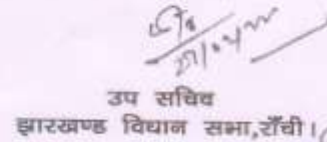 उप सचिव
झारखण्ड विधान सभा,राँची।